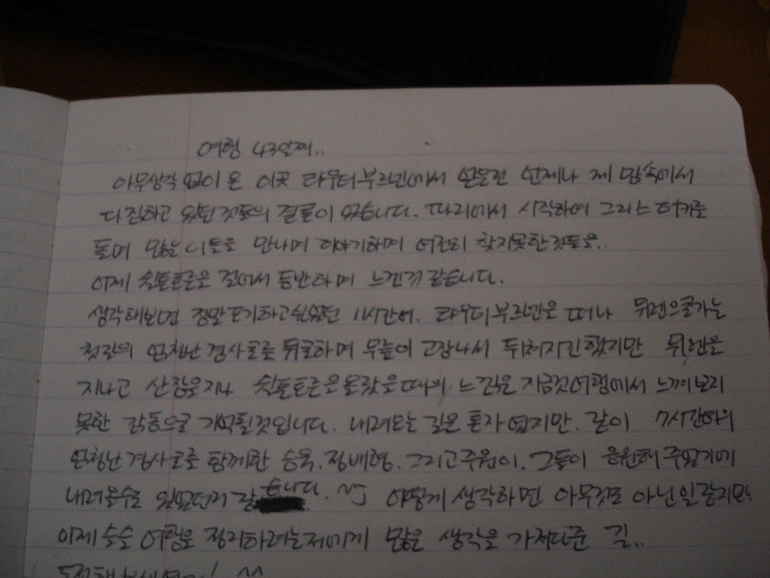 여행 43일째..
아무생각 없이 온 이곳 라우터부르넨에서 얻은건 언제나 제 맘속에서
다짐하고 있던것들의 결론이 있습니다. 파리에서 시작하여 그리스 터키를
돌며 많은 이들을 만나며 이야기하며 여전히 찾지못한것들을..
어제 쉴트호른을 걸어서 등반하며 느낀것 같습니다.
생각해보면 정말 포기하고싶었던 11시간여. 라우터부르넨을 떠나 뮈렌으로가는
첫길의 엄청난 경사로를 뒤로하며 무릎이 고장나서 뒤쳐지긴했지만 뮈렌을
지나고 산장을지나 쉴트호른을올랐을때의 느낌은 지금껏여행에서 느껴보지
못한 감동으로 기억될것입니다. 내려오는 길은 혼자 였지만. 같이 7시간여의
엄청난 경사로를 함께한 승욱. 정배형. 그리고 주원이. 그들이 응원해 주었기에
내려올수도 있었던거 같습니다. ^^ 어떻게 생각하면 아무것도 아닌일같지만.
이제 슬슬 여행을 정리하려는저에게 많은 생각을 가져다준 길..